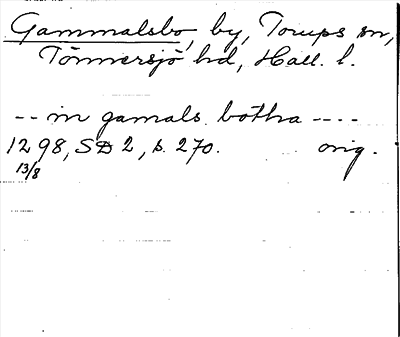 Gammalsbo, by, Torups sn,
Tönnersjö hd, Hall. l.
-- in gamals botha ----
1298, SD 2, s. 270. orig.
13/8